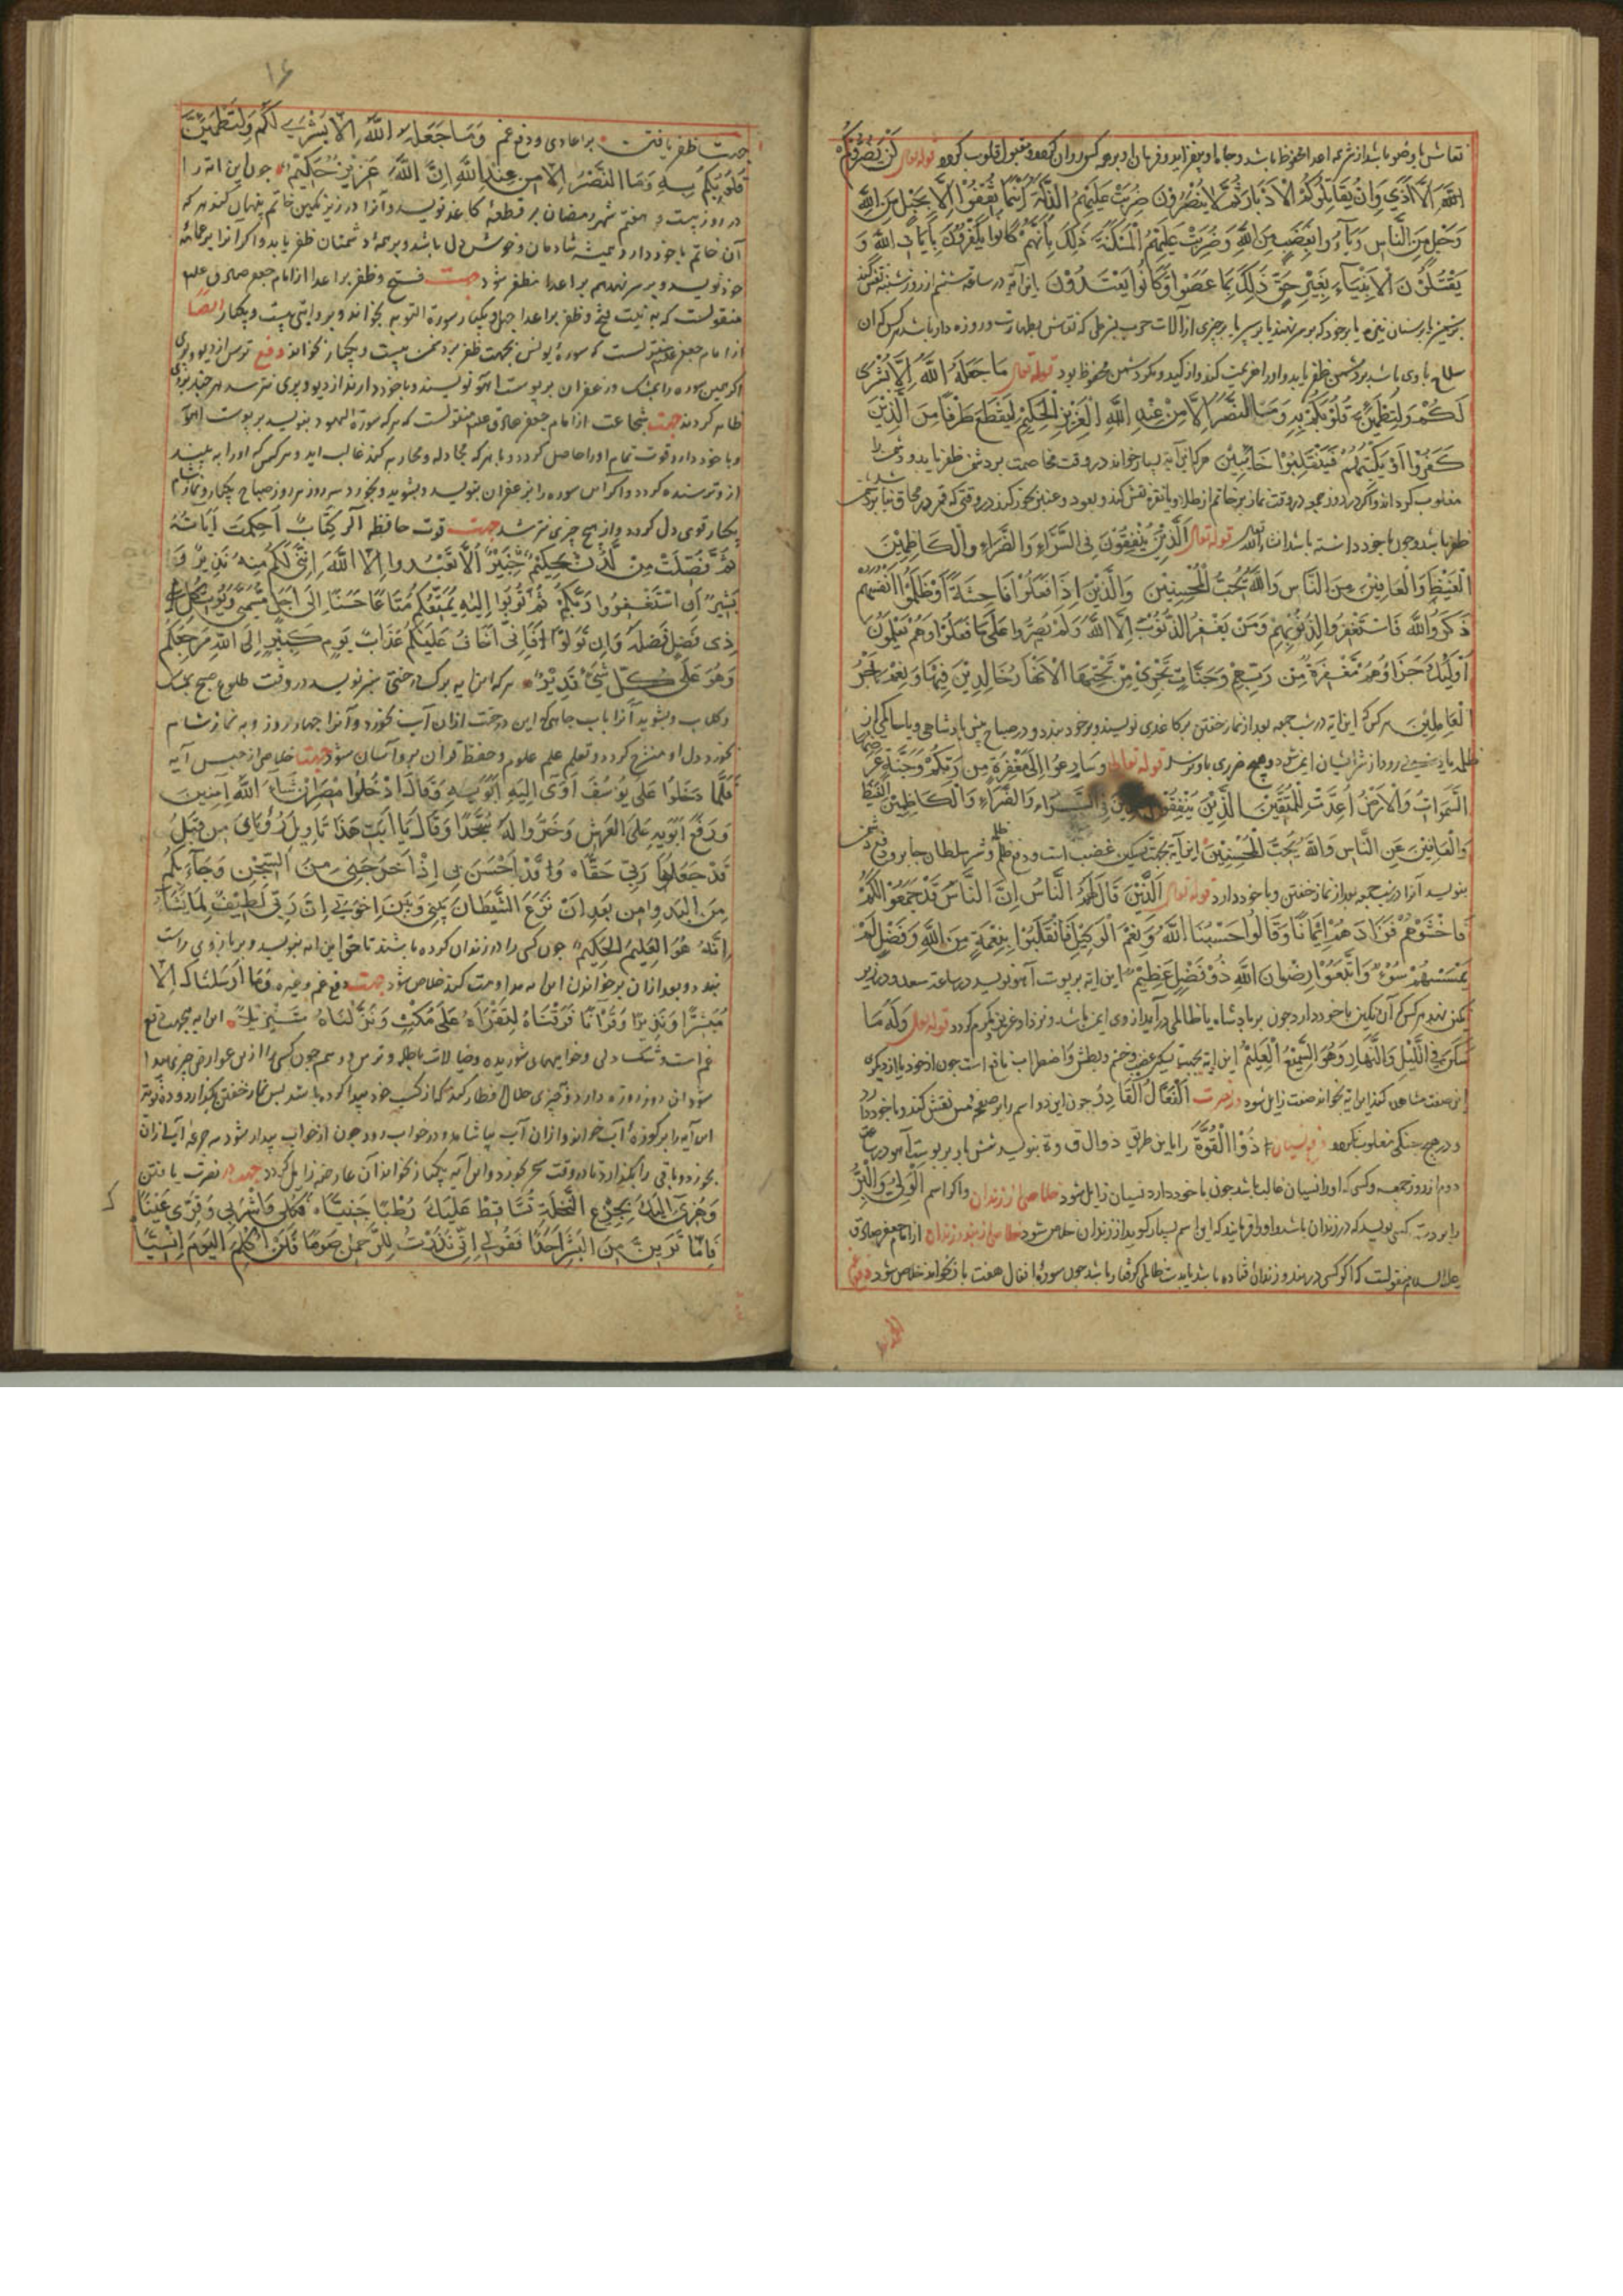 نقاش با وضو باشد از شر همه اعدا محفوظ باشد و جاه او بیفزاید و فرمان او بر همه کس روان کردد و مقبول قلوب کردد قوله تعالی لَنْ يَضُرُّوكُمْ
اللّٰهَ اِلَّا اَذًى وَاِنْ يُقَاتِلُوكُمْ الْاَدْبَارَ ثُمَّ لَا يُنْصَرُونَ ضُرِبَتْ عَلَيْهِمُ الذِّلَّةُ اَيْنَمَا ثُقِفُوا اِلَّا بِحَبْلٍ مِنَ اللّٰهِ
وَحَبْلٍ مِنَ النَّاسِ وَبَاءُوا بِغَضَبٍ مِنَ اللّٰهِ وَضُرِبَتْ عَلَيْهِمُ الْمَسْكَنَةُ ذٰلِكَ بِاَنَّهُمْ كَانُوا يَكْفُرُونَ بِآيَاتِ اللّٰهِ وَ
يَقْتُلُونَ الْاَنْبِيَاءَ بِغَيْرِ حَقٍّ ذٰلِكَ بِمَا عَصَوْا وَكَانُوا يَعْتَدُونَ این آیه در ساعت ششم از روز شنبه نقش کنند
بر شمشیر یا بر سنان نیزه یا بر خود که بر سر نهند یا بر سپر یا بر چیزی از آلات حرب بشرطی که نقاش بطهارت و روزه دار باشد هر کس که آن
سلاح با وی باشد بر دشمن ظفر یابد و او را هزیمت کند و از کید و مکر دشمن محفوظ بود قوله تعالی مَا جَعَلَهُ اللّٰهُ اِلَّا بُشْرٰى
لَكُمْ وَلِتَطْمَئِنَّ قُلُوبُكُمْ بِهِ وَمَا النَّصْرُ اِلَّا مِنْ عِنْدِ اللّٰهِ الْعَزِيزِ الْحَكِيمِ لِيَقْطَعَ طَرَفًا مِنَ الَّذِينَ
كَفَرُوا اَوْ يَكْبِتَهُمْ فَيَنْقَلِبُوا خَائِبِينَ هر که این آیه بسیار خواند در وقت مخاصمت بر دشمن ظفر یابد و دشمن را
مغلوب کرداند و اکر در روز جمعه در وقت نماز بر خاتم از طلا و یا نقره نقش کند و بعود و عنبر بخور کند در وقتی که قمر در محاق نباشد
ظفر باشد و چون با خود داشته باشد انشاء الله قوله تعالی اَلَّذِينَ يُنْفِقُونَ فِى السَّرَّاءِ وَالضَّرَّاءِ وَالْكَاظِمِينَ
الْغَيْظَ وَالْعَافِينَ عَنِ النَّاسِ وَاللّٰهُ يُحِبُّ الْمُحْسِنِينَ وَالَّذِينَ اِذَا فَعَلُوا فَاحِشَةً اَوْ ظَلَمُوا اَنْفُسَهُمْ
ذَكَرُوا اللّٰهَ فَاسْتَغْفَرُوا لِذُنُوبِهِمْ وَمَنْ يَغْفِرُ الذُّنُوبَ اِلَّا اللّٰهُ وَلَمْ يُصِرُّوا عَلٰى مَا فَعَلُوا وَهُمْ يَعْلَمُونَ
اُولٰئِكَ جَزَاؤُهُمْ مَغْفِرَةٌ مِنْ رَبِّهِمْ وَجَنَّاتٌ تَجْرِي مِنْ تَحْتِهَا الْاَنْهَارُ خَالِدِينَ فِيهَا وَنِعْمَ اَجْرُ
الْعَامِلِينَ هر کس که این آیه در شب جمعه بعد از نماز خفتن بر کاغذی نویسد و بر خود بندد و در صباح پیش پادشاهی و یا حاکمی از
رود از شر ایشان ایمن شود و هیچ ضرری باو نرسد قوله تعالی وَسَارِعُوا اِلٰى مَغْفِرَةٍ مِنْ رَبِّكُمْ وَجَنَّةٍ عَرْضُهَا
السَّمٰوَاتُ وَالْاَرْضُ اُعِدَّتْ لِلْمُتَّقِينَ الَّذِينَ يُنْفِقُونَ فِى السَّرَّاءِ وَالضَّرَّاءِ وَالْكَاظِمِينَ الْغَيْظَ
وَالْعَافِينَ عَنِ النَّاسِ وَاللّٰهُ يُحِبُّ الْمُحْسِنِينَ این آیه بجهت تسکین غضب است و دفع ظلم و شر سلطان جابر و دفع دشمن
بنویسد آنرا در شب جمعه بعد از نماز خفتن و با خود دارد قوله تعالی اَلَّذِينَ قَالَ لَهُمُ النَّاسُ اِنَّ النَّاسَ قَدْ جَمَعُوا لَكُمْ
فَاخْشَوْهُمْ فَزَادَهُمْ اِيمَانًا وَقَالُوا حَسْبُنَا اللّٰهُ وَنِعْمَ الْوَكِيلُ فَانْقَلَبُوا بِنِعْمَةٍ مِنَ اللّٰهِ وَفَضْلٍ لَمْ
يَمْسَسْهُمْ سُوءٌ وَاتَّبَعُوا رِضْوَانَ اللّٰهِ ذُو فَضْلٍ عَظِيمٍ این آیه بر پوست آهو نویسد در ساعت سعد و در زیر
نکین نهد هر کس که آن نکین با خود دارد چون بر پادشاه یا ظالمی درآید از وی ایمن باشد و نزد او عزیز و مکرم کردد قوله تعالی وَلَهُ مَا
سَكَنَ فِى اللَّيْلِ وَالنَّهَارِ وَهُوَ السَّمِيعُ الْعَلِيمُ این آیه بجهت تسکین غضب و خشم و بطش و اضطراب نافع است چون از خود یا از دیکری
این صفت مشاهده کند این آیه بخواند صفت زایل شود اَلْفَعَّالُ الْقَادِرُ چون این دو اسم را بر صفحه مس نقش کند و با خود دارد
در هیچ جنکی مغلوب نکردد دفع نسیان ذُو الْقُوَّةِ را باین طریق ذ و ا ل ق و ة بنویسد شش بار بر پوست آهو در ساعت
دوم از روز جمعه و کسی که او را نسیان غالب باشد چون با خود دارد نسیان زایل شود خلاصی از زندان و اکر اسم
کسی نویسد که در زندان باشد که این اسم بسیار کوید از زندان خلاص شود خلاصی از بند و زندان از امام جعفر صادق
علیه السلام منقولست که اکر کسی در بند و زندان فتاده باشد یا بدست ظالمی کرفتار باشد چون سوره انفال هفت بار بخواند خلاص شود
۱۶
جهت ظفر یافتن بر اعادی و دفع غم وَمَا جَعَلَهُ اللّٰهُ اِلَّا بُشْرٰى لَكُمْ وَلِتَطْمَئِنَّ
قُلُوبُكُمْ بِهِ وَمَا النَّصْرُ اِلَّا مِنْ عِنْدِ اللّٰهِ اِنَّ اللّٰهَ عَزِيزٌ حَكِيمٌ چون این آیه را
در روز بیست و هفتم شهر رمضان بر قطعهٔ کاغذ نویسد و آنرا در زیر نکین خاتم پنهان کند هر که
آن خاتم با خود دارد همیشه شادمان و خوش دل باشد و بر همهٔ دشمنان ظفر یابد و اکر آنرا بر عمامهٔ
خود نویسد و بر سر نهد هم بر اعدا مظفر شود جهت فتح و ظفر بر اعدا از امام جعفر صادق علیه
منقولست که به نیت فتح و ظفر بر اعدا چهل و یکبار سورة التوبه بخواند و بروایتی بیست و یکبار ایضا
از امام جعفر منقولست که سورهٔ یونس بجهت ظفر بر دشمن بیست و یکبار بخواند دفع ترس از دیو و پری
اکر همین سوره را بمشک و زعفران بر پوست آهو نویسند و با خود دارند از دیو و پری نترسد هر چند بروی
ظاهر کردند جهت شجاعت از امام جعفر صادق علیه منقولست که هر که سورة الهود بنویسد بر پوست آهو
و با خود دارد قوت تمام او را حاصل کردد و با هر که مجادله و محاربه کند غالب آید و هر کس که او را به بیند
از و ترسنده کردد و اکر این سوره را بزعفران بنویسد و بشوید و بخورد سه روز هر روز صباح یکبار و نماز شام
یکبار قوی دل کردد و از هیچ چیزی نترسد جهت قوت حافظه الٓرٰ كِتَابٌ اُحْكِمَتْ آيَاتُهُ
ثُمَّ فُصِّلَتْ مِنْ لَدُنْ حَكِيمٍ خَبِيرٍ اَلَّا تَعْبُدُوا اِلَّا اللّٰهَ اِنَّنِى لَكُمْ مِنْهُ نَذِيرٌ وَ
بَشِيرٌ اَنِ اسْتَغْفِرُوا رَبَّكُمْ ثُمَّ تُوبُوا اِلَيْهِ يُمَتِّعْكُمْ مَتَاعًا حَسَنًا اِلٰى اَجَلٍ مُسَمًّى وَيُؤْتِ كُلَّ
ذِى فَضْلٍ فَضْلَهُ وَاِنْ تَوَلَّوْا فَاِنِّى اَخَافُ عَلَيْكُمْ عَذَابَ يَوْمٍ كَبِيرٍ اِلَى اللّٰهِ مَرْجِعُكُمْ
وَهُوَ عَلٰى كُلِّ شَىْءٍ قَدِيرٌ هر که این آیه بر برک درختی سبز نویسد در وقت طلوع صبح بمشک
و کلاب و بشوید آنرا بآب چاهی که این درخت از ان آب خورد و آنرا چهار روز وبه نماز شام
بخورد دل او منشرح کردد و تعلم علم علوم و حفظ قرآن برو آسان شود جهت خلاصی از حبس آیه
فَلَمَّا دَخَلُوا عَلٰى يُوسُفَ اٰوٰى اِلَيْهِ اَبَوَيْهِ وَقَالَ ادْخُلُوا مِصْرَ اِنْ شَاءَ اللّٰهُ آمِنِينَ
وَرَفَعَ اَبَوَيْهِ عَلَى الْعَرْشِ وَخَرُّوا لَهُ سُجَّدًا وَقَالَ يَا اَبَتِ هٰذَا تَاْوِيلُ رُؤْيَاىَ مِنْ قَبْلُ
قَدْ جَعَلَهَا رَبِّى حَقًّا وَقَدْ اَحْسَنَ بِى اِذْ اَخْرَجَنِى مِنَ السِّجْنِ وَجَاءَ بِكُمْ
مِنَ الْبَدْوِ مِنْ بَعْدِ اَنْ نَزَغَ الشَّيْطَانُ بَيْنِى وَبَيْنَ اِخْوَتِى اِنَّ رَبِّى لَطِيفٌ لِمَا يَشَاءُ
اِنَّهُ هُوَ الْعَلِيمُ الْحَكِيمُ چون کسی را در زندان کرده باشند ناحق این آیه بنویسد و بر بازوی راست
بندد و بعد از آن بر خواندن این آیه مداومت کند خلاص شود جهت دفع غم و غیره وَمَا اَرْسَلْنَاكَ اِلَّا
مُبَشِّرًا وَنَذِيرًا وَقُرْآنًا فَرَقْنَاهُ لِتَقْرَاَهُ عَلٰى مُكْثٍ وَنَزَّلْنَاهُ تَنْزِيلًا این آیه بجهت دفع
غم است و تنک دلی و خوابهای شوریده و خیالات باطله و ترس و وسم چون کسی را ازین عوارض چیزی پیدا
شود آن روز روزه دارد و بچیزی حلال افطار کند که از کسب خود پیدا کرده باشد پس نماز خفتن بکذارد و ده نوبت
این آیه را بر کوزهٔ آب خواند و از آن آب بیاشامد و در خواب رود چون از خواب بیدار شود سه جرعه آب از آن
بخورد و باقی را بکذارد تا در وقت سحر بخورد و این آیه یکبار بخواند آن عارضه زایل کردد جهت نصرت یافتن
وَهُزِّى اِلَيْكِ بِجِذْعِ النَّخْلَةِ تُسَاقِطْ عَلَيْكِ رُطَبًا جَنِيًّا فَكُلِى وَاشْرَبِى وَقَرِّى عَيْنًا
فَاِمَّا تَرَيِنَّ مِنَ الْبَشَرِ اَحَدًا فَقُولِى اِنِّى نَذَرْتُ لِلرَّحْمٰنِ صَوْمًا فَلَنْ اُكَلِّمَ الْيَوْمَ اِنْسِيًّا